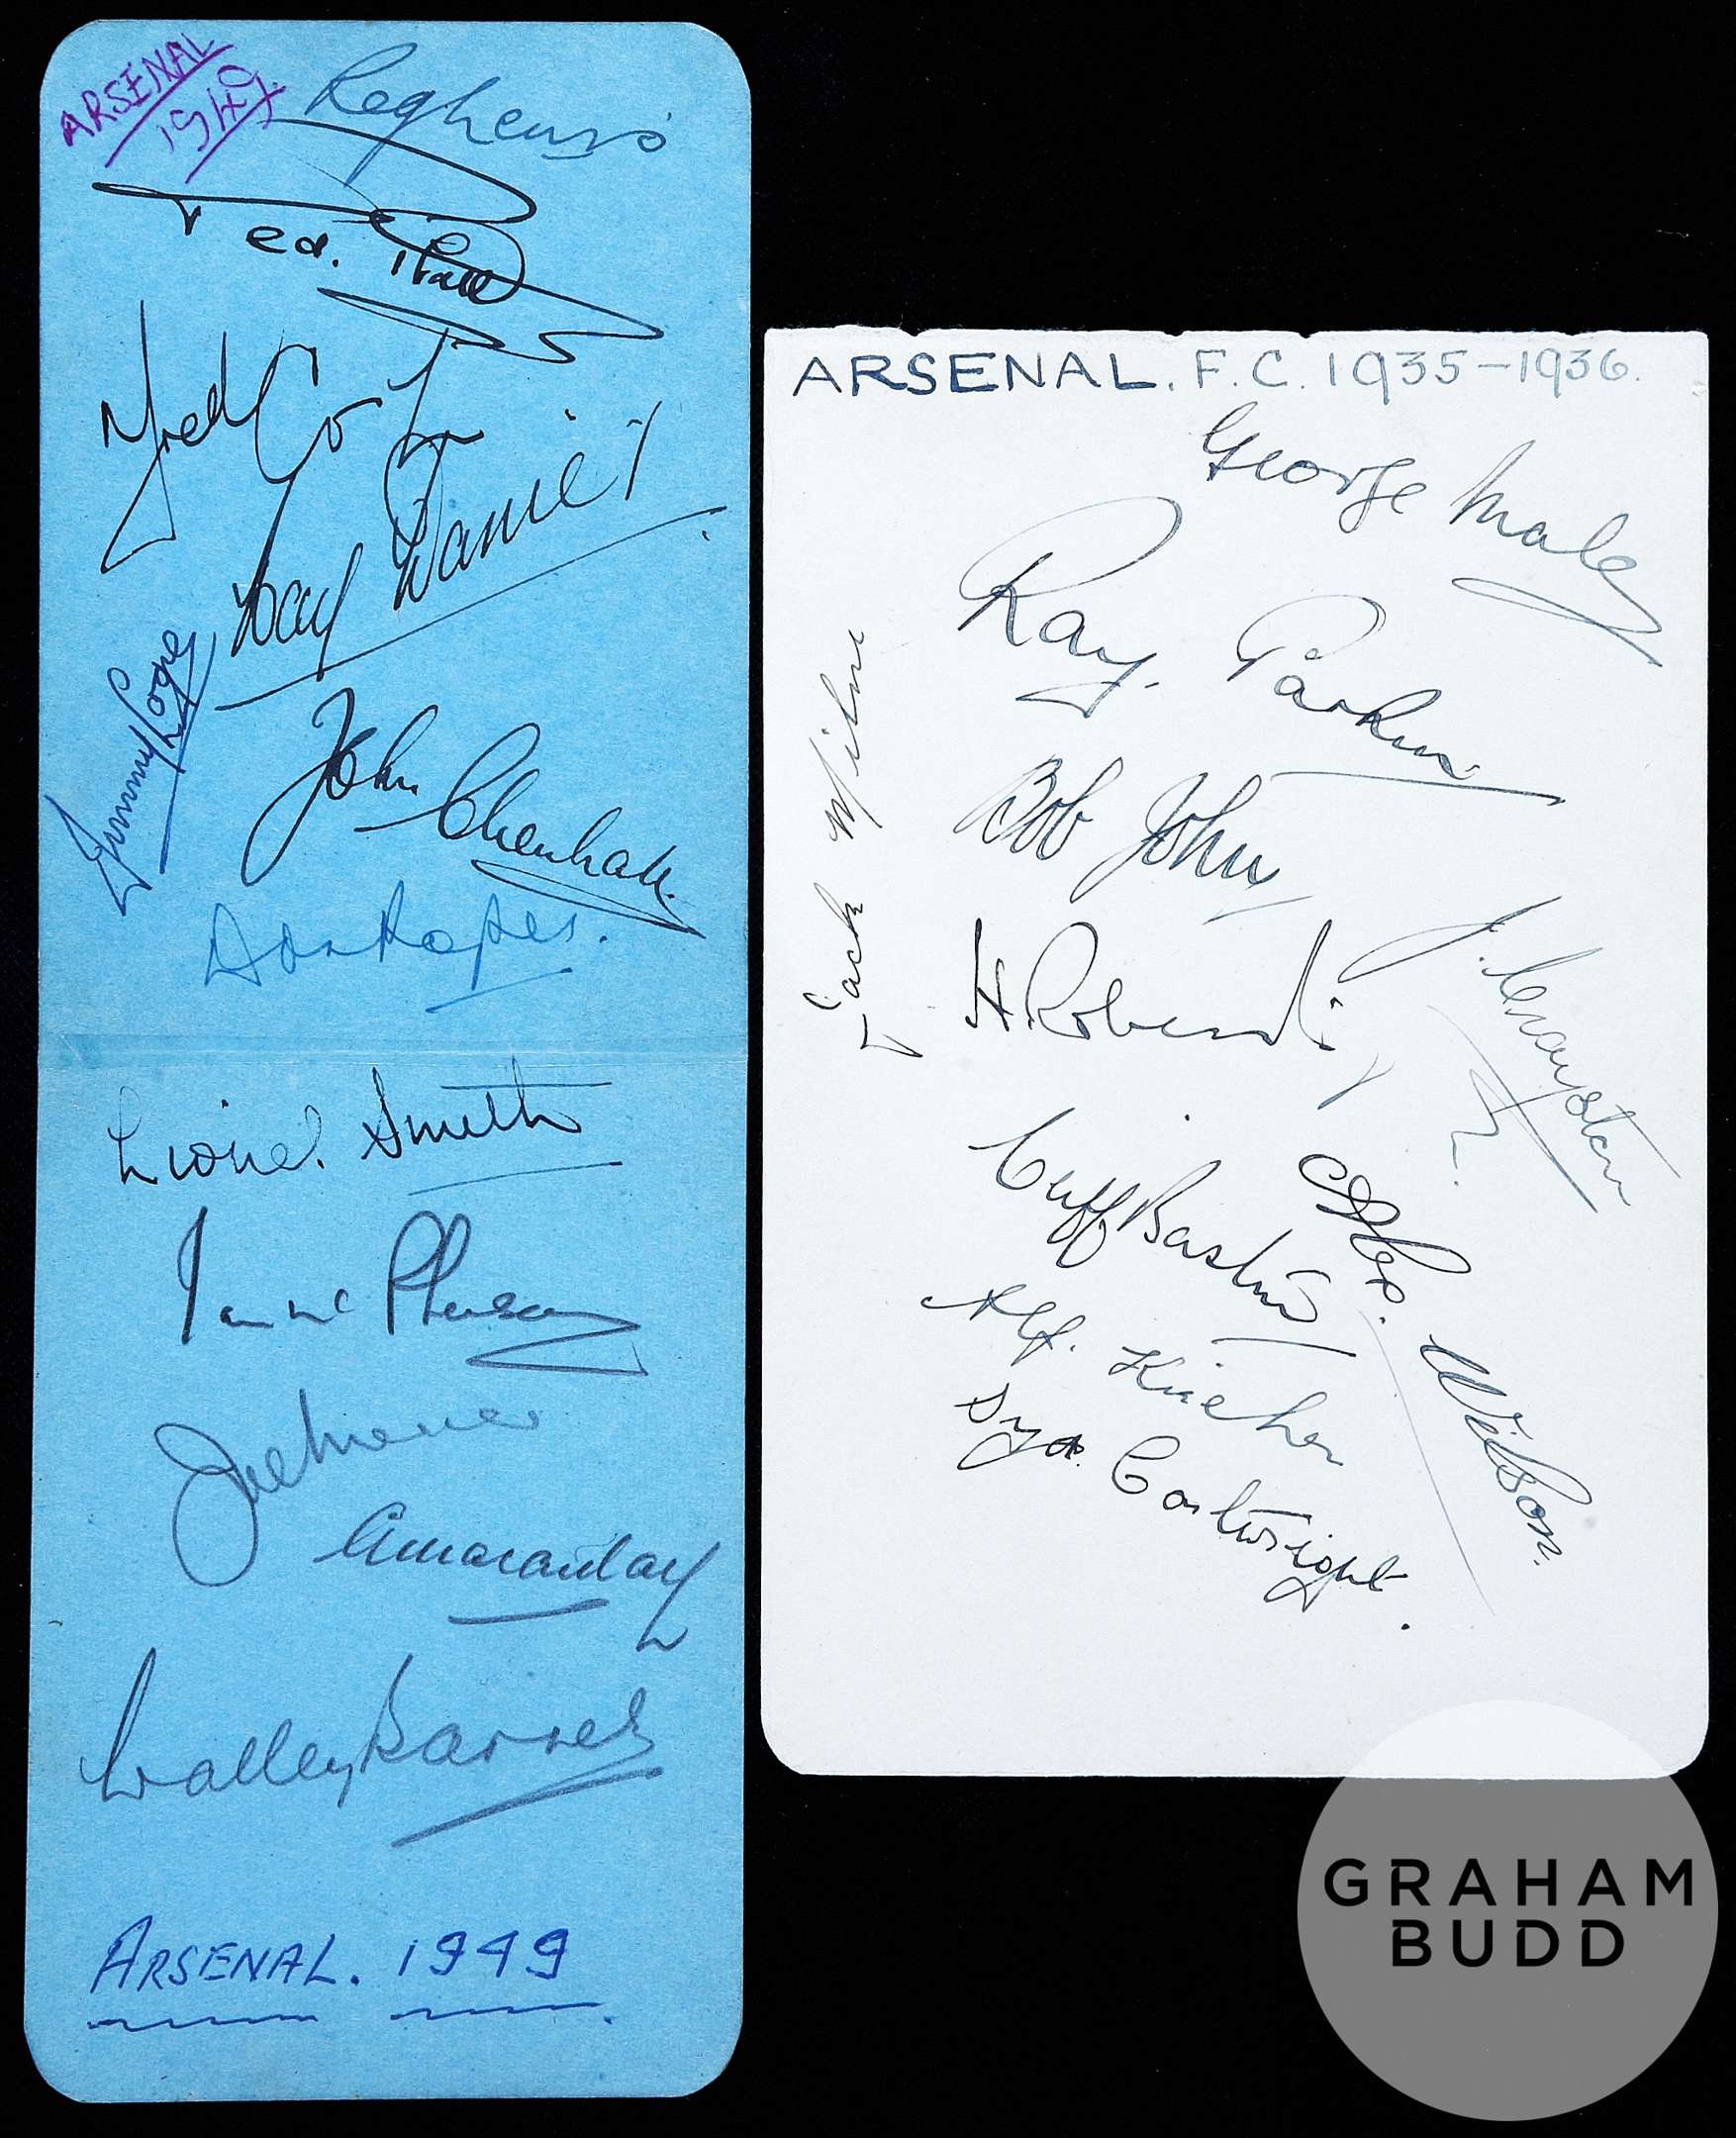 ARSENAL
1949.
Reg Lewis
Ted. Platt
Fred Cox
Ray Daniel
Jimmy Logie
John Chenhall.
Don Roper.
Lionel. Smith
Ian McPherson
Joe Mercer
A Macaulay
Walley Barnes
ARSENAL. 1949
ARSENAL. F.C. 1935-1936.
George Male
Ray. Parkin
Jack Milne
Bob John
H. Roberts
J. Crayston
Cliff Bastin
Alex. Wilson.
Alf. Kirchen
Syd. Cartwright.
GRAHAM
BUDD